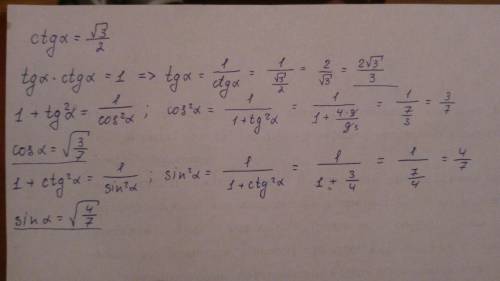 ctgα = √3/2
tgα · ctgα = 1 => tgα = 1/ctgα = 1/(√3/2) = 2/√3 = 2√3/3
1 + tg²α = 1/cos²α ; cos²α = 1/(1+tg²α) = 1/(1 + 4·3/9) = 1/(7/3) = 3/7
cosα = √(3/7)
1 + ctg²α = 1/sin²α ; sin²α = 1/(1+ctg²α) = 1/(1 + 3/4) = 1/(7/4) = 4/7
sinα = √(4/7)